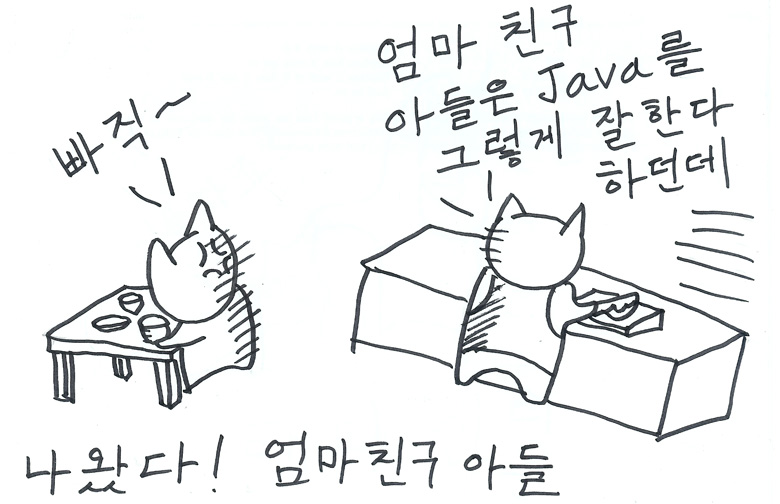 빠직~
엄마 친구
아들은 Java를
그렇게 잘한다
하던데
나 왔다! 엄마친구 아들